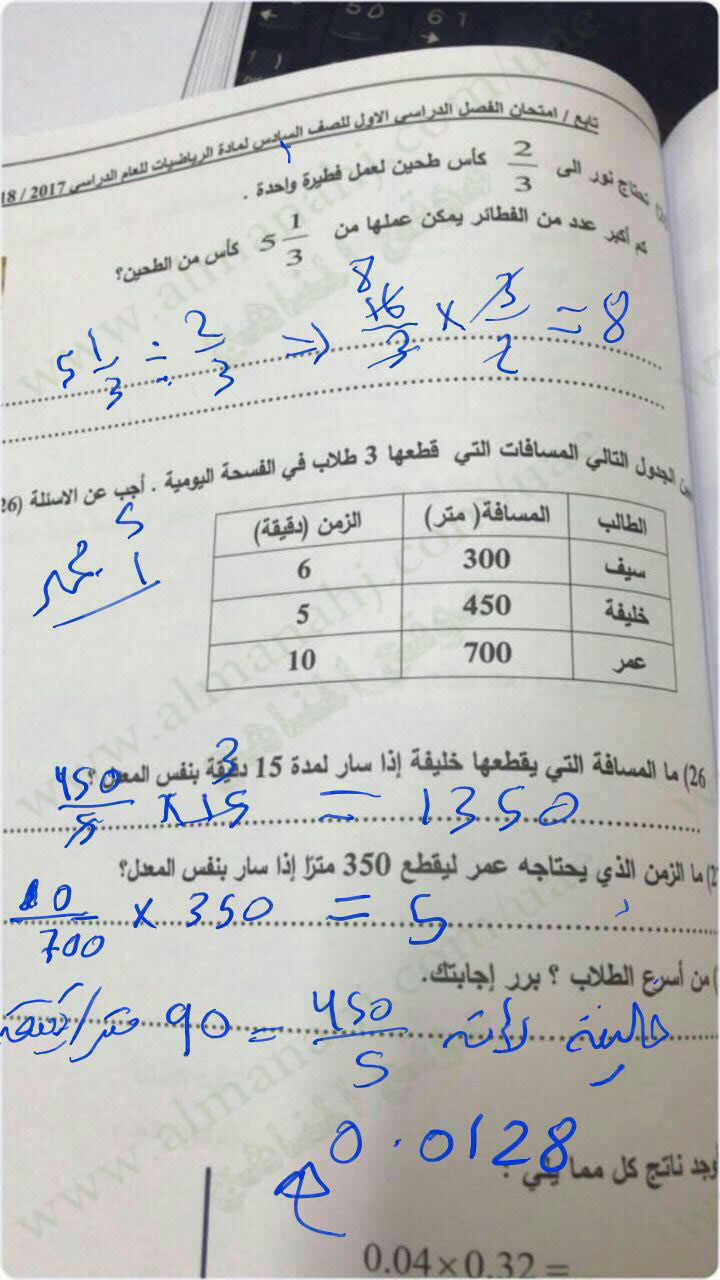 تابع / امتحان الفصل الدراسي الاول للصف السادس لمادة الرياضيات للعام الدراسي 2017 / 18
تحتاج نور الى 2/3 كأس طحين لعمل فطيرة واحدة .
كم أكبر عدد من الفطائر يمكن عملها من 5 1/3 كأس من الطحين؟
5 1/3 ÷ 2/3 ⇒ 16/3 × 3/2 = 8
8
الجدول التالي المسافات التي قطعها 3 طلاب في الفسحة اليومية . أجب عن الاسئلة (26
الطالب المسافة( متر) الزمن (دقيقة)
سيف 300 6
خليفة 450 5
عمر 700 10
26) ما المسافة التي يقطعها خليفة إذا سار لمدة 15 دقيقة بنفس المعدل ؟
3
450/5 × 15 = 1350
ما الزمن الذي يحتاجه عمر ليقطع 350 مترًا إذا سار بنفس المعدل؟
10/700 × 350 = 5
) من أسرع الطلاب ؟ برر إجابتك.
خليفة لأنه 450/5 = 90 متر/دقيقة
0.0128
أوجد ناتج كل مما يلي :
0.04×0.32 =
www.almanahj.com/uae
موقع المناهج
www.almanahj.com/uae
موقع المناهج
www.almanahj.com/uae
موقع المناهج